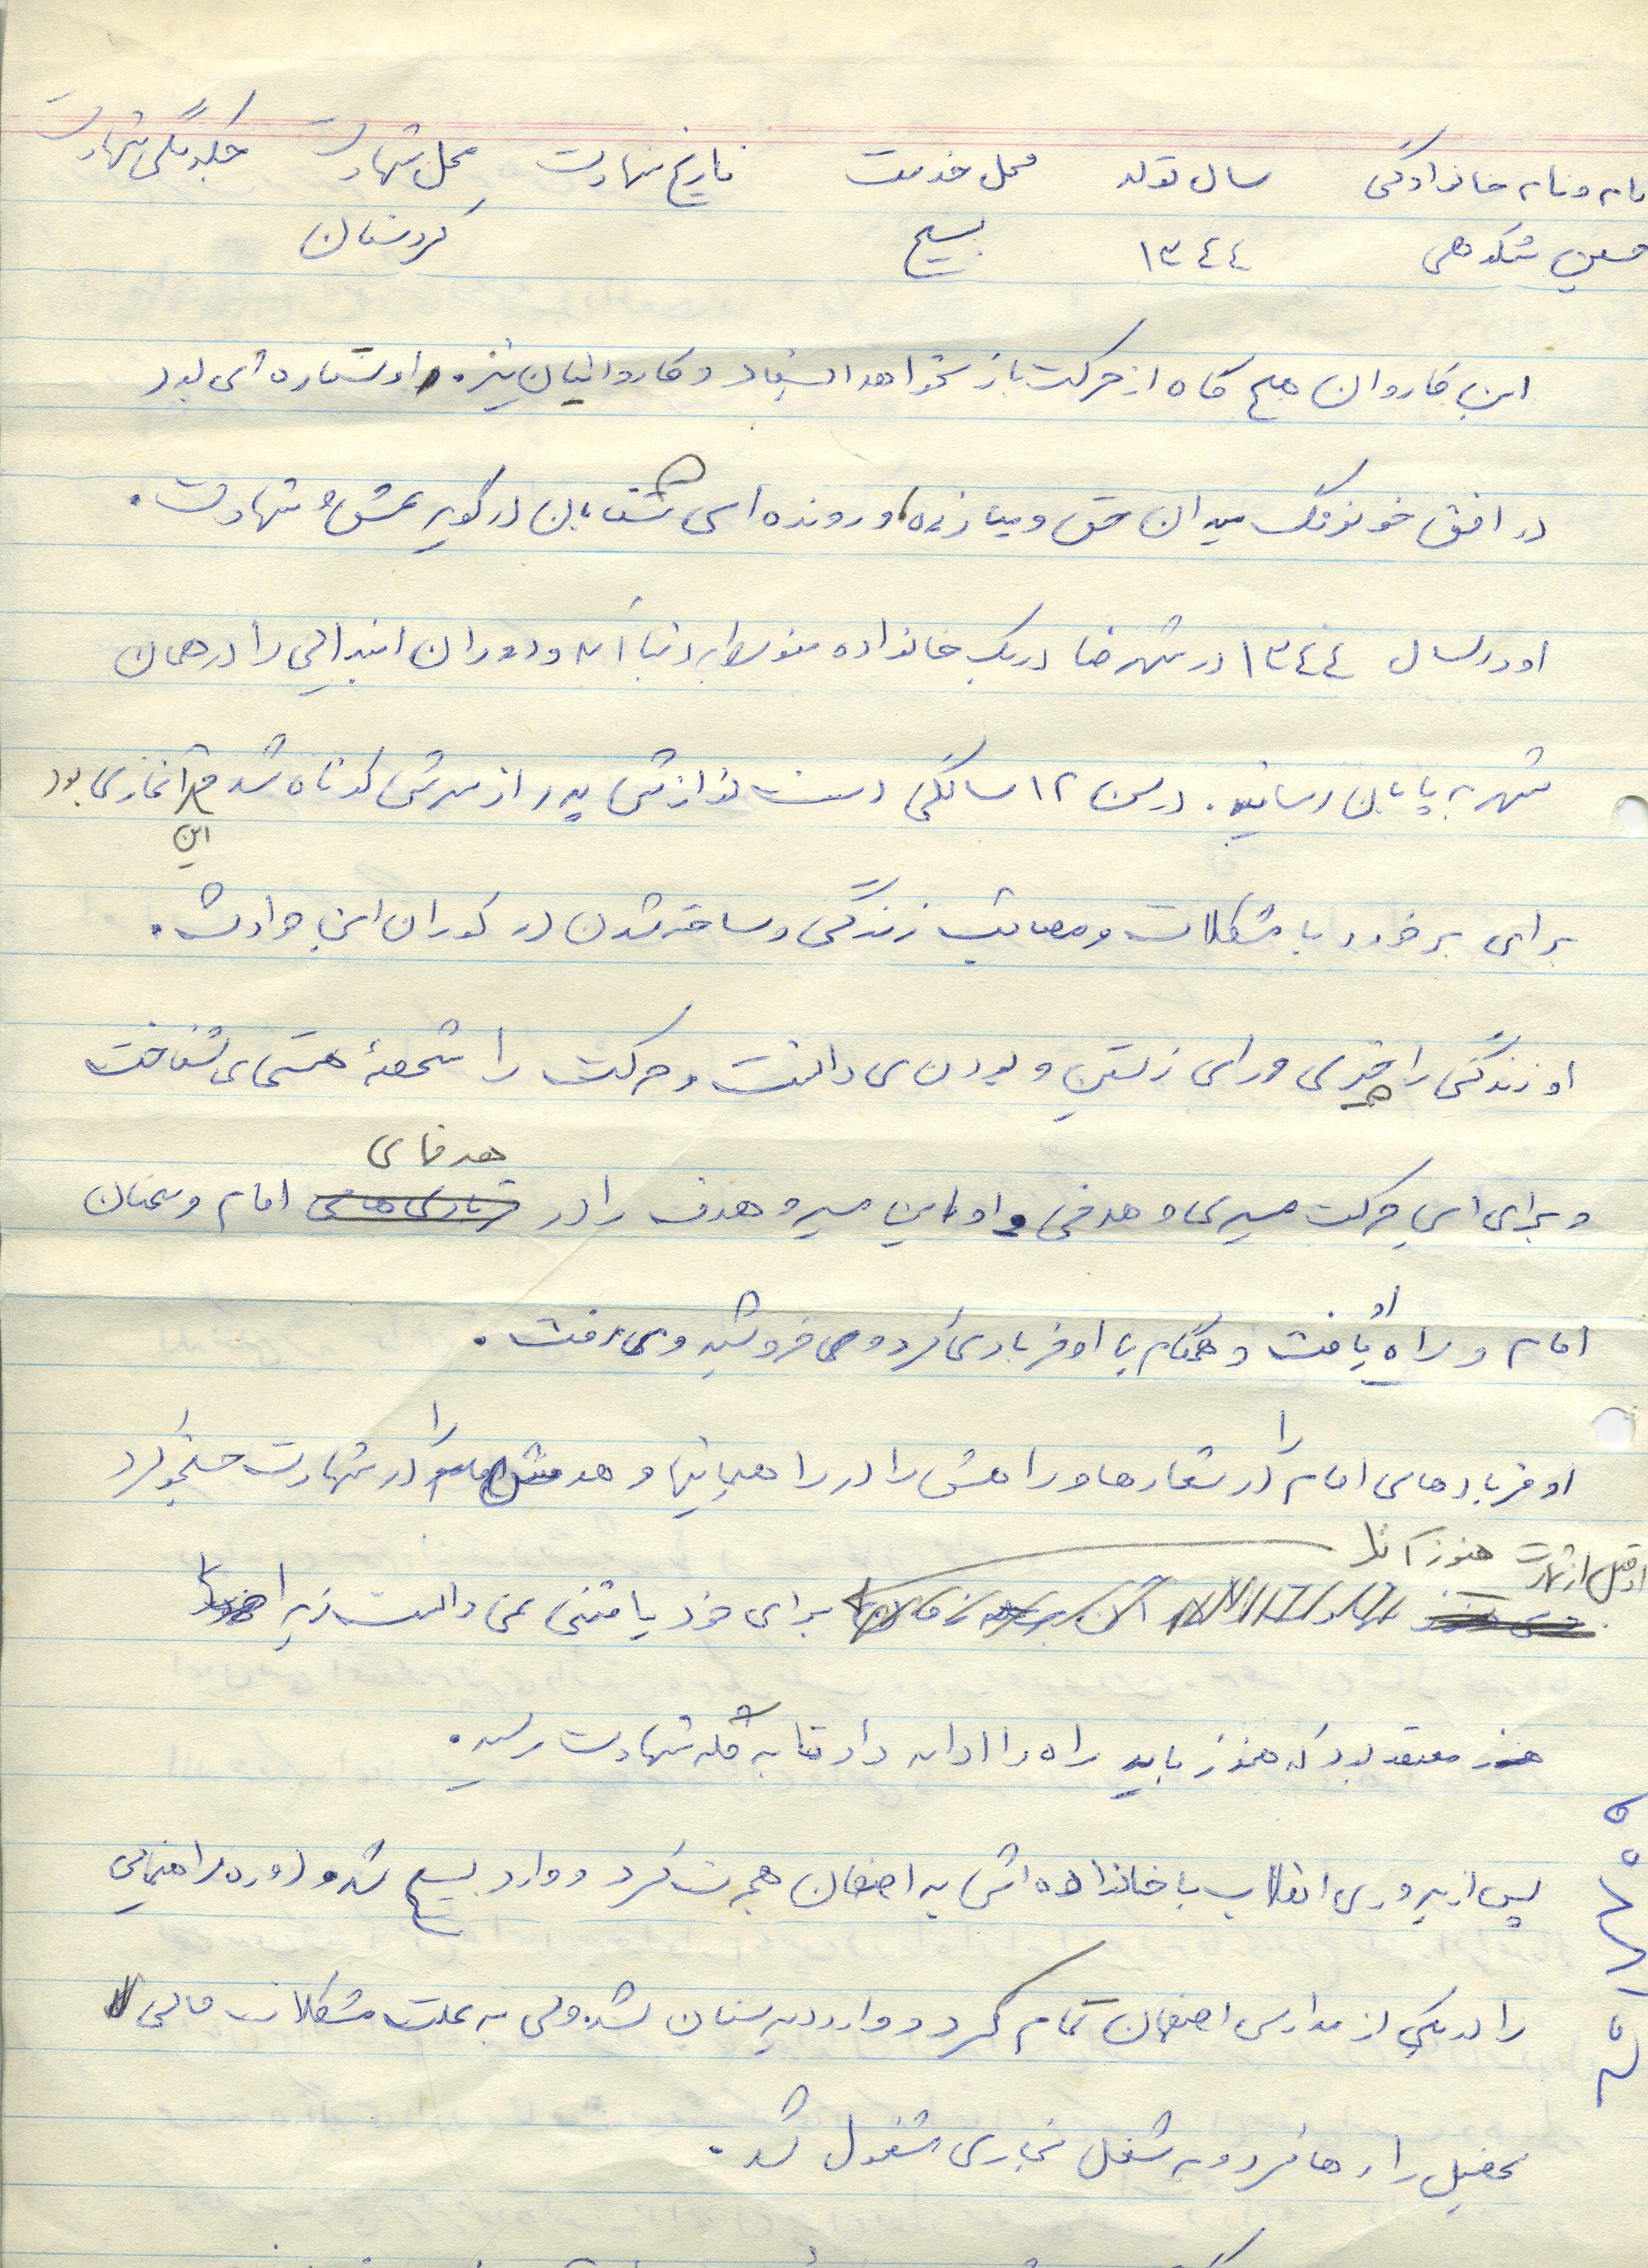 نام و نام خانوادگی سال تولد محل خدمت تاریخ شهادت محل شهادت چگونگی شهادت
حسین ۱۳۴۴ بسیج کردستان
این کاروان هیچ گاه از حرکت باز نخواهد ایستاد و کاروانیان نیز. او ستاره ای بود
در افق خونرنگ میدان حق و مبارزه و رونده ای شتابان در کویر عشق و شهادت.
او در سال ۱۳۴۴ در شهرضا در یک خانواده متوسط به دنیا آمد و دوران ابتدایی را در همان
شهر به پایان رسانید. در سن ۱۲ سالگی دست نوازش پدر از سرش کوتاه شد و آغازی بود
این
برای برخورد با مشکلات و مصائب زندگی و ساخته شدن در کوران این حوادث.
او زندگی را چیزی ورای زیستن و بودن می دانست و حرکت را شمهٔ هستی می شناخت
هدفهای
و برای این حرکت مسیری و هدفی و او این مسیر و هدف را در امام و سخنان
امام و راه او یافت و همگام با او فریاد می کرد و می خروشید و می رفت.
او فریادهای امام را در شعارها و راهش را در راهپیمائیها و هدفش را در شهادت جستجو کرد
او قبل از شهادت هنوز آنرا
برای خود یافتنی نمی دانست زیرا
معتقد بود که هنوز باید راه را ادامه داد تا به قله شهادت رسید.
پس از پیروزی انقلاب با خانواده اش به اصفهان هجرت کرد و وارد بسیج شد و دوره راهنمایی
را در یکی از مدارس اصفهان تمام کرد و وارد دبیرستان شد ولی به علت مشکلات مالی
تحصیل را رها کرد و به شغل نجاری مشغول شد.